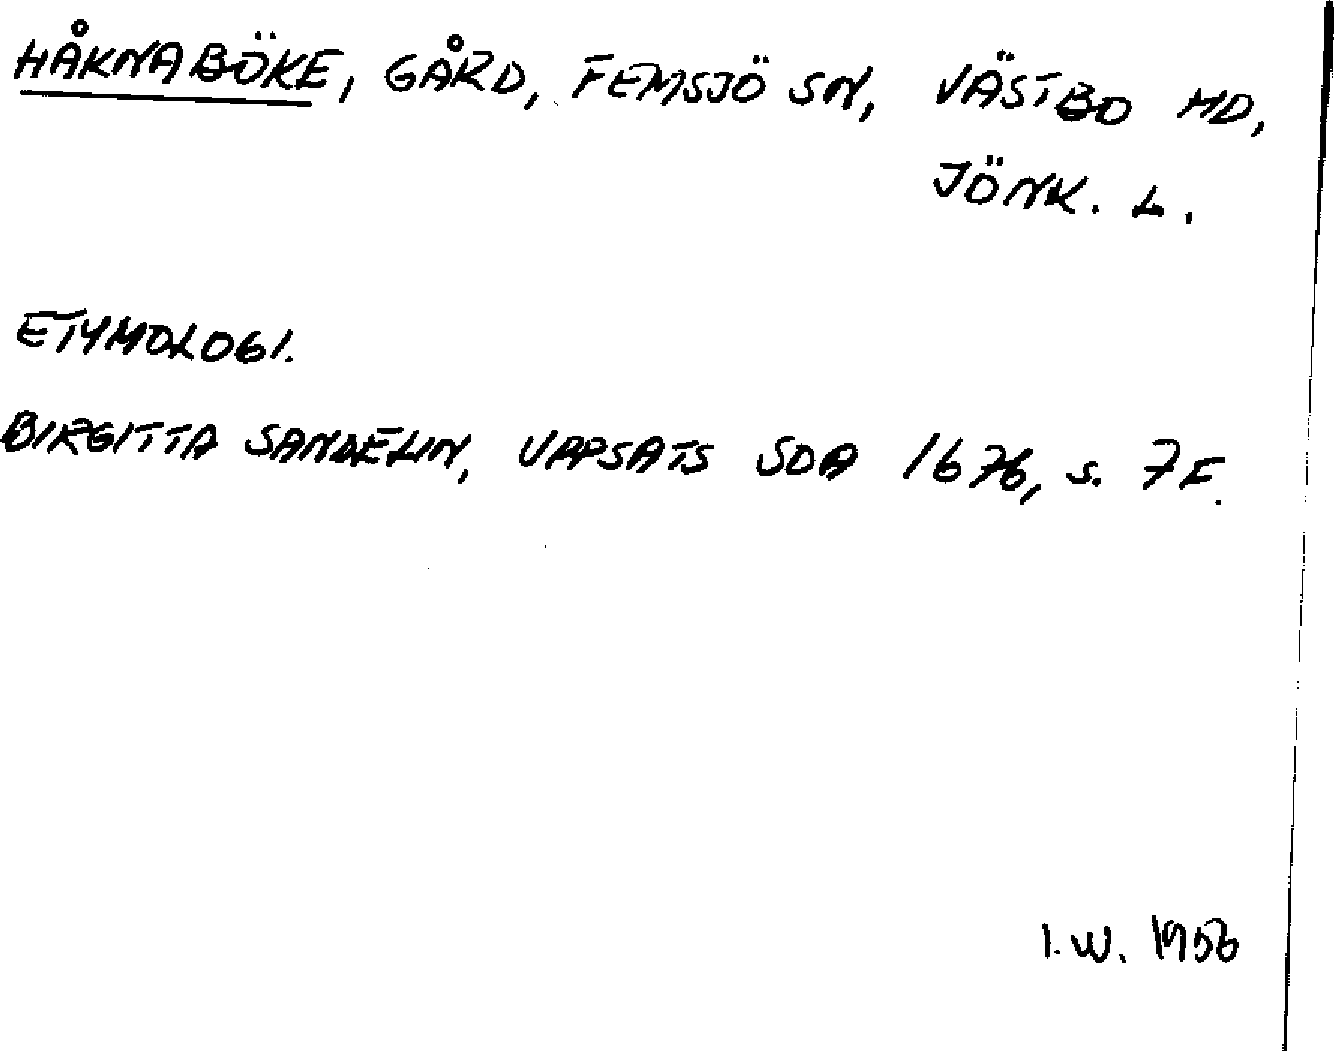 HÅKNABÖKE, GÅRD, FEMSJÖ SN, VÄSTBO HD,
JÖNK. L.
ETYMOLOGI.
BIRGITTA SANDELIN, UPPSATS SDA 1676, s. 7 F.
I.W. 1956